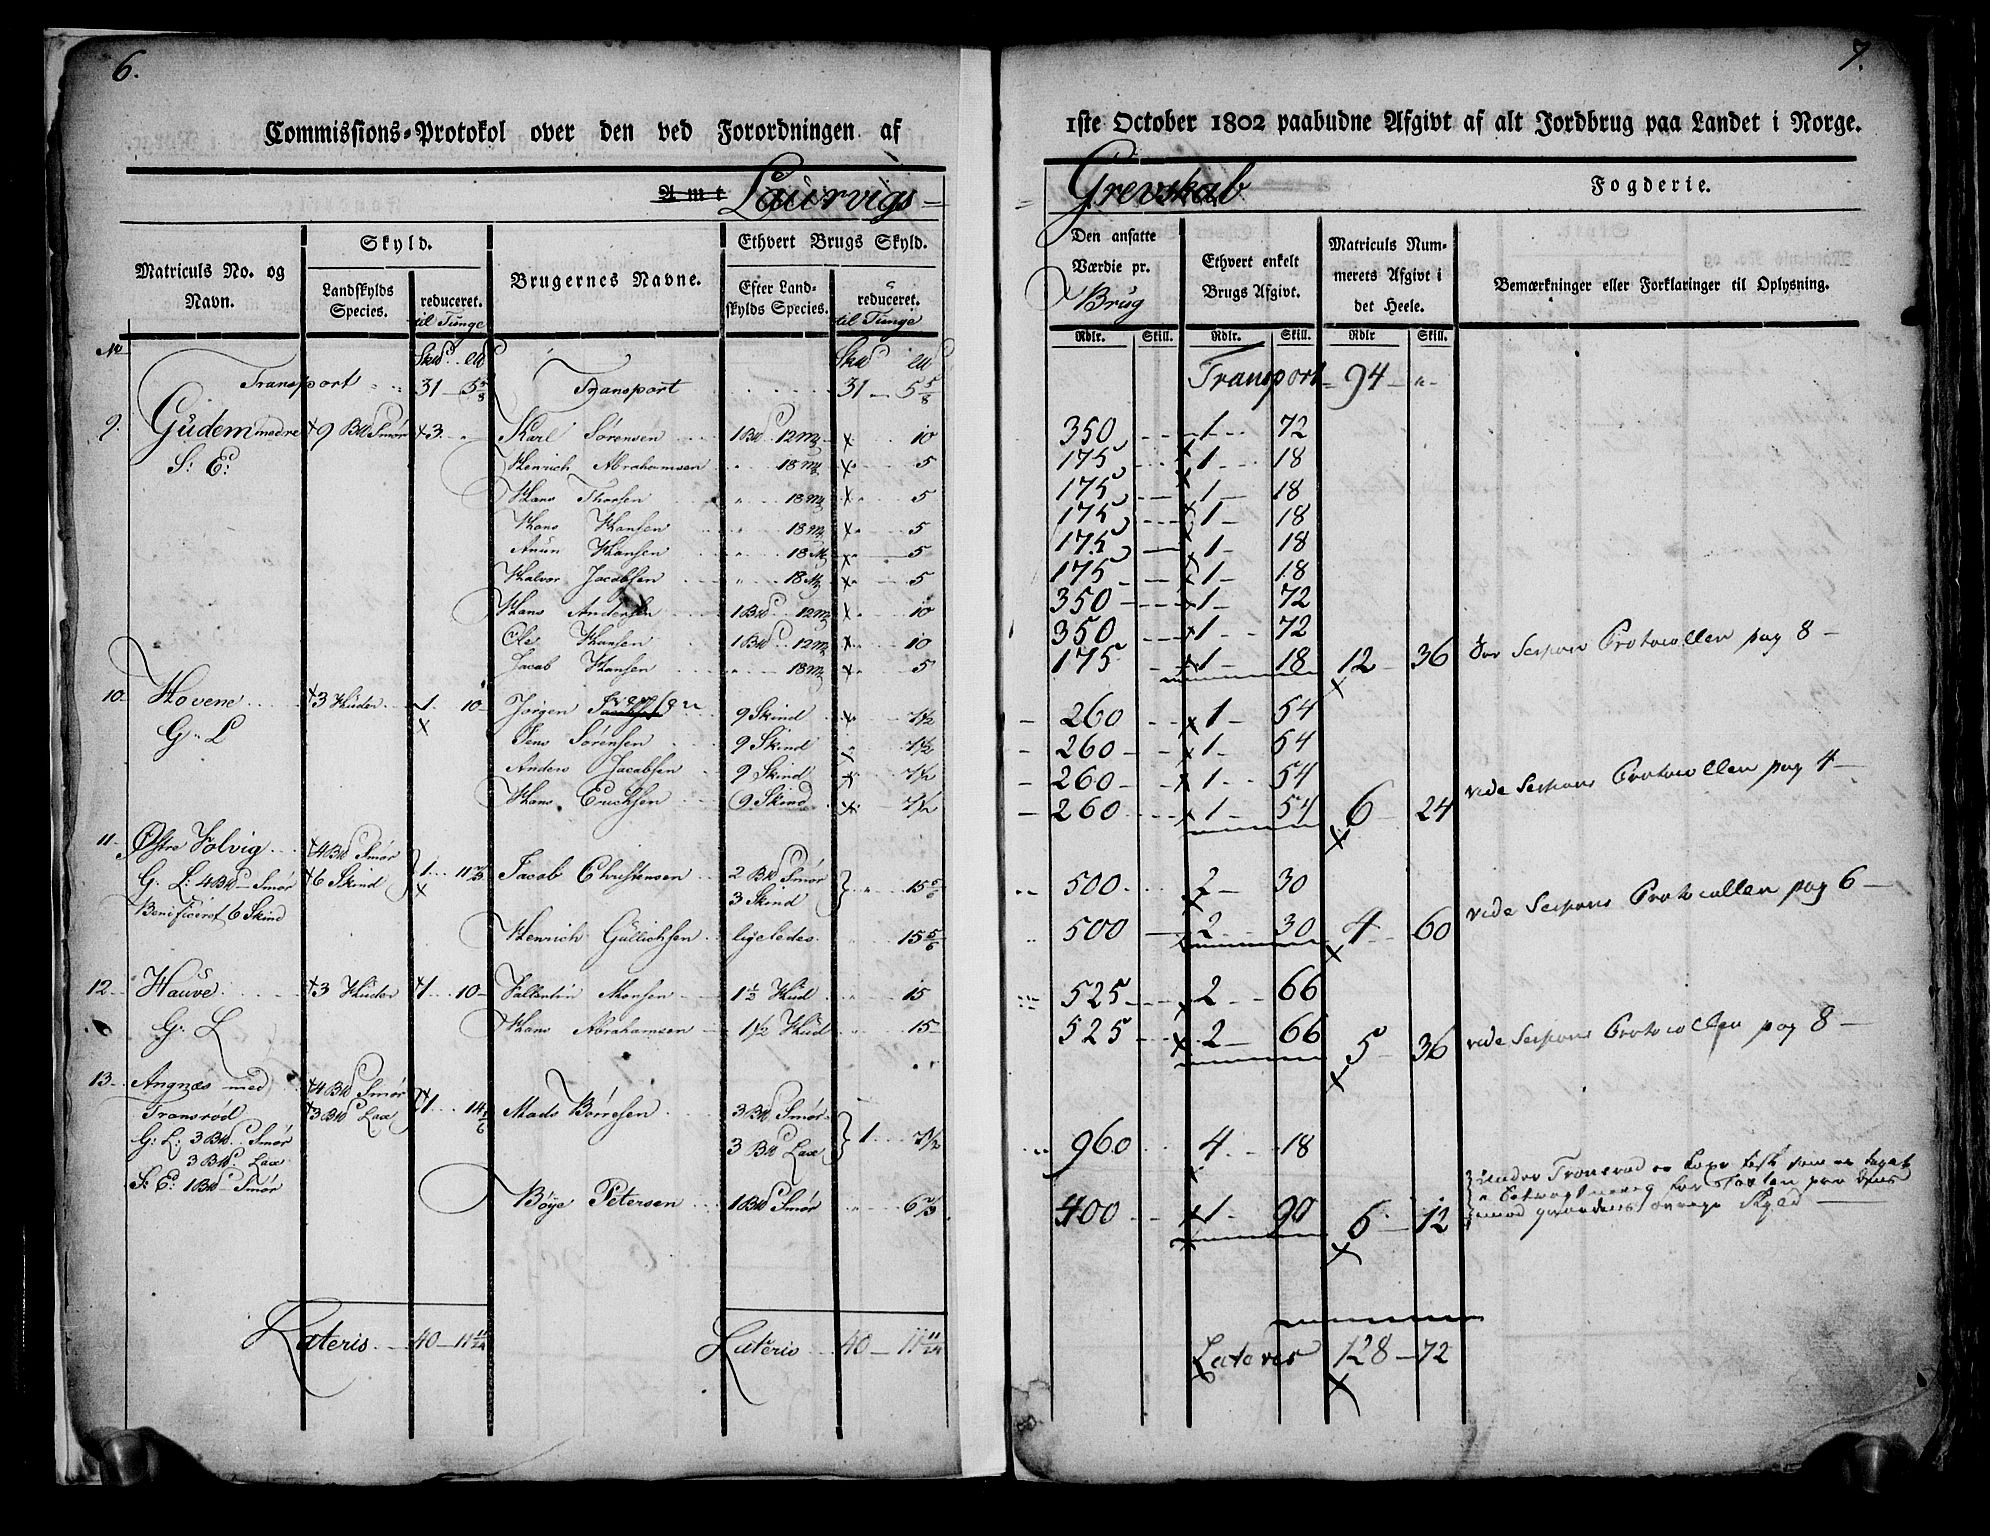 6.
Commissions-Protokol over den ved Forordningen af
A m t Laurvigs
Matriculs No. og Navn.
Skyld.
Landskylds Species.
reduceret.
til Tunge
Brugernes Navne.
Ethvert Brugs Skyld.
Efter Landskylds Species.
reduceret.
til Tunge
No
Transport 31 5 5/8 Transport 31 5 5/8
9. Gudem medre 9 Bd Smør 3 Karl Sørensen 1 Bd 12 Mk 10
S: E: Henrich Abrahamsen 18 Mk 5
Hans Thorsen 18 Mk 5
Hans Hansen 18 Mk 5
Anun Hansen 18 Mk 5
Halvor Jacobsen 18 Mk 5
Hans Andersen 1 Bd 12 Mk 10
Ole Hansen 1 Bd 12 Mk 10
Jacob Hansen 18 Mk 5
10. Hovene 3 Huder 1 10 Jørgen 9 Skind 7 1/2
G: L Jens Sørensen 9 Skind 7 1/2
Anders Jacobsen 9 Skind 7 1/2
Hans Erichsen 9 Skind 7 1/2
11. Østre Holvig 4 Bd Smør
G. L: 4 Bd Smør 6 Skind 1 11 2/3 Jacob Christensen 2 Bd Smør 15 5/6
Beneficeret 6 Skind 3 Skind
Henrich Gullichsen ligeledes 15 5/6
12. Hauve 3 Huder 1 10 Vallentin Monsen 1 1/2 Hud 15
G: L Hans Abrahamsen 1 1/2 Hud 15
13. Angnæs med 4 Bd Smør
Transrød 3 Bd Lax 1 14 1/6 Mads Børresen 3 Bd Smør
G: L: 3 Bd Smør 3 Bd Lax 1 7 1/2
3 Bd Lax
S: E: 1 Bd Smør Böye Petersen 1 Bd Smør 6 2/3
Lateris 40 11 11/24 Lateris 40 11 11/24
7.
1ste October 1802 paabudne Afgivt af alt Jordbrug paa Landet i Norge.
Grevskab Fogderie.
Den ansatte Værdie pr.
Brug
Ethvert enkelt Brugs Afgivt.
Matriculs Nummerets Afgivt i det Heele.
Bemærkninger eller Forklaringer til Oplysning.
Rdlr. Skill. Rdlr. Skill. Rdlr Skill.
Transport 94
350 1 72
175 1 18
175 1 18
175 1 18
175 1 18
175 1 18
350 1 72
350 1 72
175 1 18 12 36 Protocollen pag 8
260 1 54
260 1 54
260 1 54
260 1 54 6 24 vide Sessions Protocollen pag 4
500 2 30
500 2 30 4 60 vide Sessions Protocollen pag 6
525 2 66
525 2 66 5 36 vide Sessions Protocollen pag 8
960 4 18
under
400 1 90 6 12 Skyld
Lateris 128 72